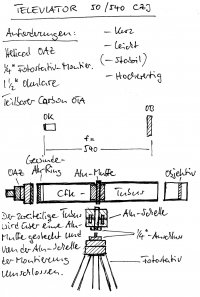 TELEVIATOR 50/540 CZJ
Anforderungen:
- Kurz
- Leicht
Helical OAZ
- (Stabil)
1/4" Fotostativ-Montier.
- Hochwertig
1 1/4" Okulare
Teilbarer Carbon OTA
OK
OB
f =
540
Gewinde-
OAZ Alu-Ring
Alu-Muffe
Objektiv
Cfk - Tubus
Der zweiteilige Tubus
wird über eine Alu-
Muffe gesteckt und
von der Alu-Schelle
der Montierung
umschlossen.
Alu-Schelle
1/4"-Anschluss
Fotostativ